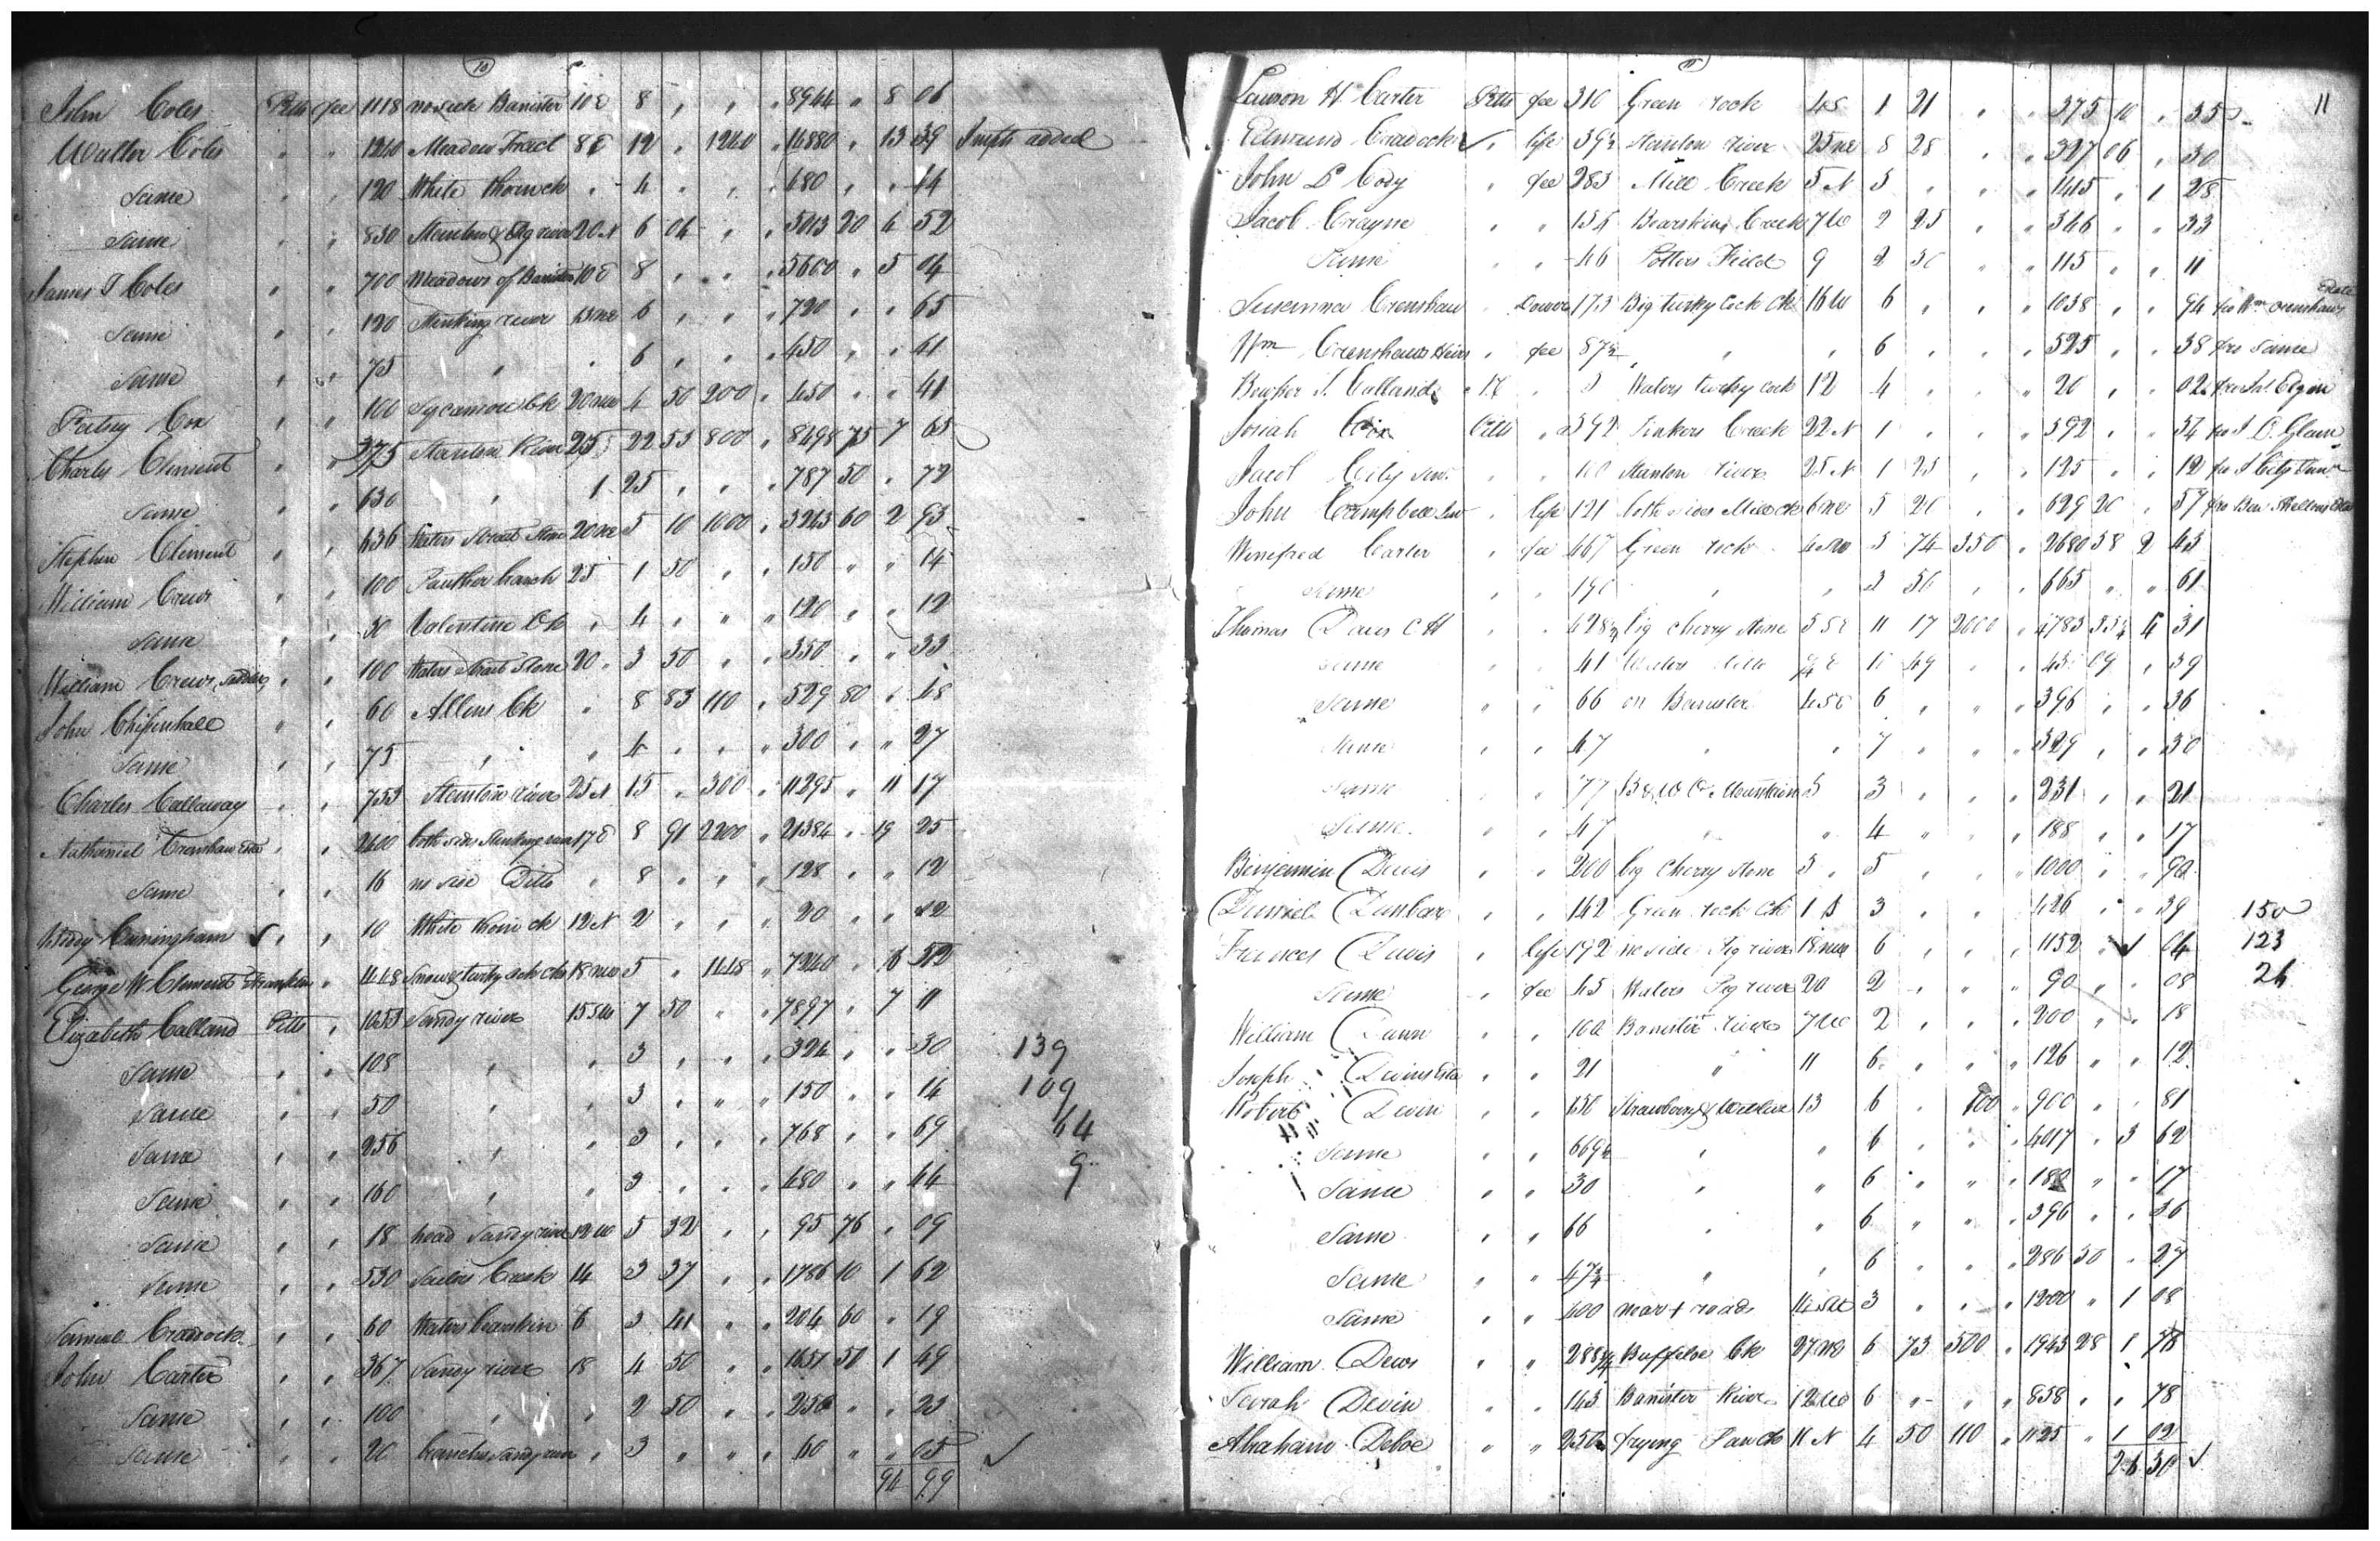 10
John Coles Pitts fee 1118 no side Banister 10 E 8 " " " 8944 " 8 06
Walter Coles " " 1240 Meadow Tract 8 E 12 " 1240 " 14880 " 13 39 Impts added
Same " " 120 White thorn ck " 4 " " " 480 " " 44
Same " " 830 Stanton & Pig river 20 N 6 04 " " 5013 20 4 52
James T Coles " " 700 Meadows of Banister 10 E 8 " " " 5600 " 5 04
Same " " 120 Stinking river 13 NE 6 " " " 720 " " 65
Same " " 75 " " 6 " " " 450 " " 41
Patsy Cox " " 100 Sycamore Ck 20 NW 4 50 200 " 450 " " 41
Charles Clement " " 375 Stanton River 25 22 55 800 " 8498 75 7 65
Same " " 630 " 1 25 " " " 787 50 " 72
Stephen Clement " " 636 Waters Straitstone 20 NE 5 10 1000 " 3243 60 2 93
William Crews " " 100 Panther branch 25 1 50 " " 150 " " 14
Same " " 30 Valentine Ck " 4 " " " 120 " " 12
William Crews " " 100 Waters Strait Stone 20 " 3 50 " " 350 " " 33
John Chisenhall " " 60 Allens Ck " 8 83 110 " 529 80 " 48
Same " " 75 " " 4 " " " 300 " " 27
Charles Callaway " " 753 Stanton river 25 N 15 " 300 " 11295 " 11 17
Nathaniel Crenshaw Esta " " 2400 both sides Stinking river 17 E 8 91 2200 " 21384 " 19 25
Same " " 16 no side Ditto " 8 " " " 128 " " 12
Cuningham ✓ " " 10 White thorn ck 12 N 2 " " " 20 " " 02
George W Clement Franklin " 1448 Snow & turkycock cks 18 NW 5 " 1448 " 7240 " 6 52
Elizabeth Calland Pitts " 1053 Sandy river 15 SW 7 50 " " 7897 " 7 11
Same " " 108 " " 3 " " " 324 " " 30 139
Same " " 50 " " 3 " " " 150 " " 14 109
Same " " 256 " " 3 " " " 768 " " 69 64
Same " " 160 " " 3 " " " 480 " " 44 9
Same " " 18 head Sandy river 12 W 5 32 " " 95 76 " 09
Same " " 530 Sailors Creek 14 3 37 " " 1786 10 1 62
Samuel Craddock " " 60 Waters bearskin 6 3 41 " " 204 60 " 19
John Carter " " 367 Sandy river 18 4 50 " " 1651 50 1 49
Same " " 100 " " 2 50 " " 250 " " 23
Same " " 20 branches Sandy river " 3 " " " 60 " " 05 ✓
94 99
11
Lawson H Carter Pitts fee 310 Green rock 4 S 1 21 " " 375 10 " 35 11
Edmund Craddock ✓ " life 39½ Stanton river 25 NE 8 28 " " 327 06 " 30
John D Cody " fee 283 Mill Creek 5 N 5 " " " 1415 " 1 28
Jacob Crayne " " 154 Bearskin Creek 7 W 2 25 " " 346 " " 33
Same " " 46 Potters Field 9 2 50 " " 115 " " 11
Susanna Crenshaw " Dower 173 Big turky Cock Ck 16 W 6 " " " 1038 " " 94 fro Wm Crenshaws Estate
Wm Crenshaws Heirs " fee 87½ " " 6 " " " 525 " " 38 fro Same
Bowker S. Calland " 5 Waters turky cock 12 4 " " " 20 " " 02
Josiah Cox Pitts " 592 Tinkers Creek 22 N 1 " " " 592 " " 54
Jacob Cily " " 100 Stanton river 25 N 1 25 " " 125 " " 12
John Campbell " life 121 both sides Mill ck 6 NE 5 20 " " 629 20 " 57 fro Ben
Winefred Carter " fee 467 Green rock 4 SW 5 74 350 " 2680 58 2 43
Same " " 190 " " 3 50 " " 665 " " 61
Thomas Davis C H " " 428½ big cherry stone 5 SE 11 17 2000 " 4783 55¼ 4 31
Same " " 41 Waters ditto E 10 49 " " 430 09 " 39
Same " " 66 on Banister 4 SE 6 " " " 396 " " 36
Same " " 47 " " 7 " " " 329 " " 30
Same " " 77 B & W O Mountain 5 3 " " " 231 " " 21
Same " " 47 " " 4 " " " 188 " " 17
Benjamin Davis " " 200 big Cherry stone 5 " 5 " " " 1000 " " 90
Daniel Dunbar " " 142 Green rock Ck 1 S 3 " " " 426 " " 39 150
Frances Davis " life 192 no side Pig river 18 NW 6 " " " 1152 " 1 04 123
Same " fee 45 Waters Pig river 20 2 " " " 90 " " 08 26
William Dunn " " 100 Banister river 7 W 2 " " " 200 " " 18
Joseph Devins Esta " " 21 " 11 6 " " " 126 " " 12
Robert Devin " " 150 Strawberry & 13 6 " 100 " 900 " " 81
Same " " 669½ " " 6 " " " 4017 " 3 62
Same " " 30 " " 6 " " " 188 " " 17
Same " " 66 " " 6 " " " 396 " " 36
Same " " 47¾ " " 6 " " " 286 50 " 27
Same " " 400 near + roads 14 SW 3 " " " 1200 " 1 08
William Dews " " 288¾ Buffaloe Ck 27 NE 6 73 500 " 1943 28 1 78
Sarah Devin " " 143 Banister River 12 W 6 " " " 858 " " 78
Abraham Deboe " " 250 frying Pan ck 11 N 4 50 110 " 1125 " 1 02
26 30 ✓